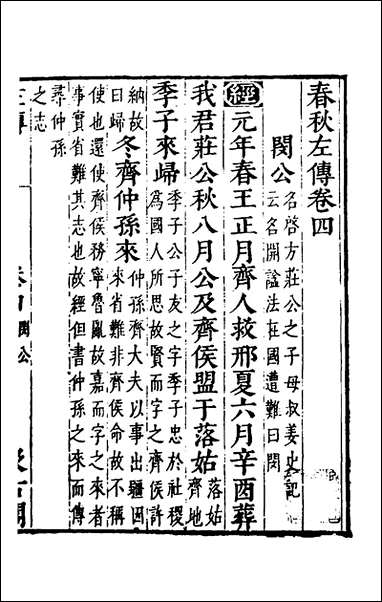 春秋左傳卷四
閔公 名啓方莊公之子母叔姜史記
云名開諡法在國遭難曰閔
經 元年春王正月齊人救邢夏六月辛酉葬
我君莊公秋八月公及齊侯盟于落姑 落姑
齊地
季子來歸 季子公子友之字季子忠於社稷
爲國人所思故賢而字之齊侯許
納故
曰歸 冬齊仲孫來 仲孫齊大夫以事出疆因
來省難非齊侯命故不稱
使也還使齊侯務寧魯亂故嘉而字之來者
事實省難其志也故經但書仲孫之來而傳
尋仲孫
之志
閔公